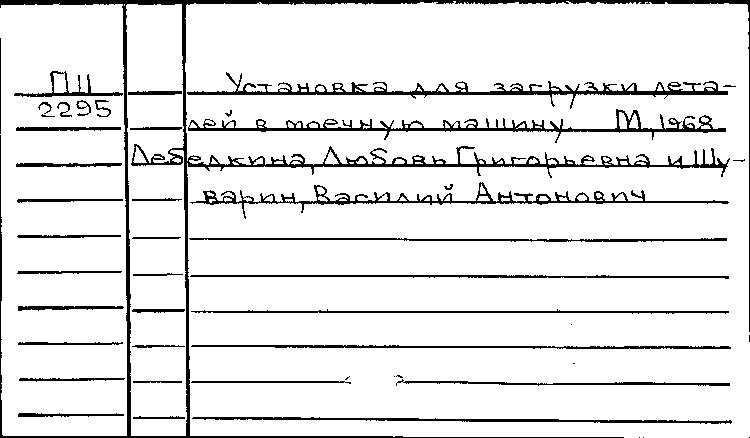 ПШ Установка для загрузки дета-
2295 лей в моечную машину. М., 1968.
Лебедкина, Любовь Григорьевна и Шу-
варин, Василий Антонович